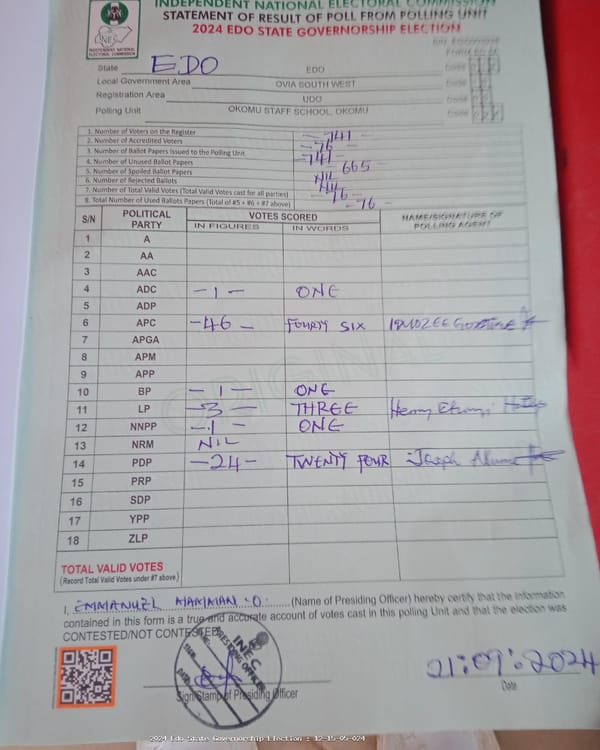 INDEPENDENT NATIONAL ELECTORAL COMMISSION
STATEMENT OF RESULT OF POLL FROM POLLING UNIT
2024 EDO STATE GOVERNORSHIP ELECTION
INEC
INDEPENDENT NATIONAL
ELECTORAL COMMISSION
State EDO EDO Code
Local Government Area OVIA SOUTH WEST Code
Registration Area UDO Code
Polling Unit OKOMU STAFF SCHOOL, OKOMU Code
1. Number of Voters on the Register - 741 -
2. Number of Accredited Voters - 76 -
3. Number of Ballot Papers Issued to the Polling Unit - 741 -
4. Number of Unused Ballot Papers - 665
5. Number of Spoiled Ballot Papers NIL
6. Number of Rejected Ballots
7. Number of Total Valid Votes (Total Valid Votes cast for all parties) - 76 -
8. Total Number of Used Ballots Papers (Total of #5 + #6 + #7 above) - 76 -
S/N POLITICAL PARTY VOTES SCORED NAME/SIGNATURE OF POLLING AGENT
IN FIGURES IN WORDS
1 A
2 AA
3 AAC
4 ADC - 1 - ONE
5 ADP
6 APC - 46 - FOURTY SIX
7 APGA
8 APM
9 APP
10 BP - 1 - ONE
11 LP - 3 - THREE Henry
12 NNPP - 1 - ONE
13 NRM NIL
14 PDP - 24 - TWENTY FOUR Joseph
15 PRP
16 SDP
17 YPP
18 ZLP
TOTAL VALID VOTES
(Record Total Valid Votes under #7 above)
ORIGINAL
I, EMMANUEL MAMMAN .O. (Name of Presiding Officer) hereby certify that the information
contained in this form is a true and accurate account of votes cast in this polling Unit and that the election was
CONTESTED/NOT CONTESTED
INEC
PRESIDING OFFICER
Sign/Stamp of Presiding Officer
21:09:2024
Date
2024 Edo State Governorship Election : 12-15-05-024